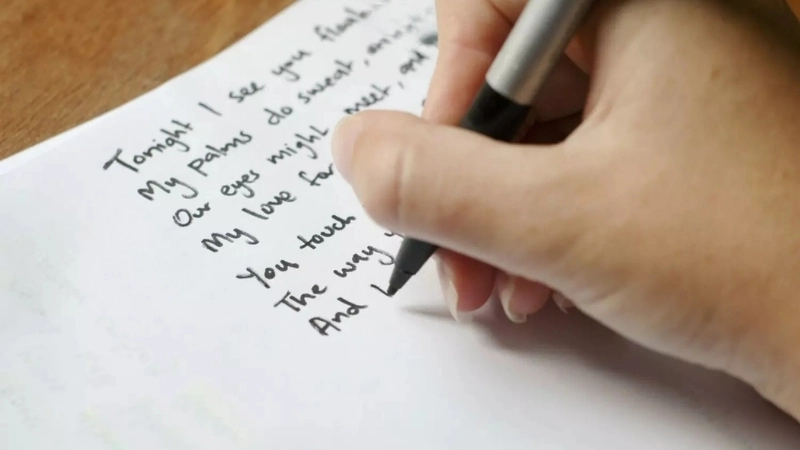 Tonight I see you
My palms do sweat,
Our eyes might meet, and
My love for
You touch
The way
And